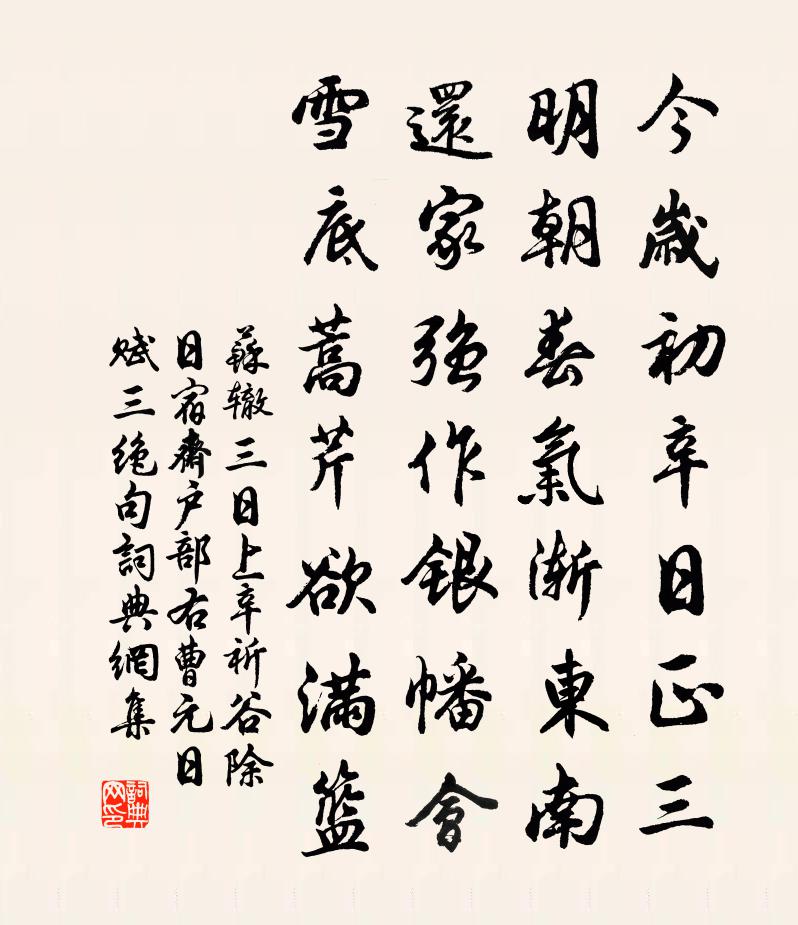 今歲初辛日正三
明朝春氣漸東南
還家強作銀幡會
雪底蒿芹欲滿籃
蘇轍三日上辛祈谷除
日宿齋戶部右曹元日
賦三絕句詞典網集
詞典网印